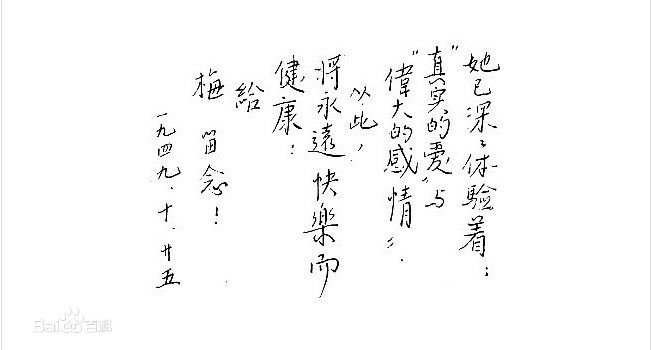 她已深〻体验着：
“真实的爱”与
“偉大的感情”．
以此，
将永遠快樂而
健康！
給
梅 留念！
一九四九、十、廿五
Bai百科